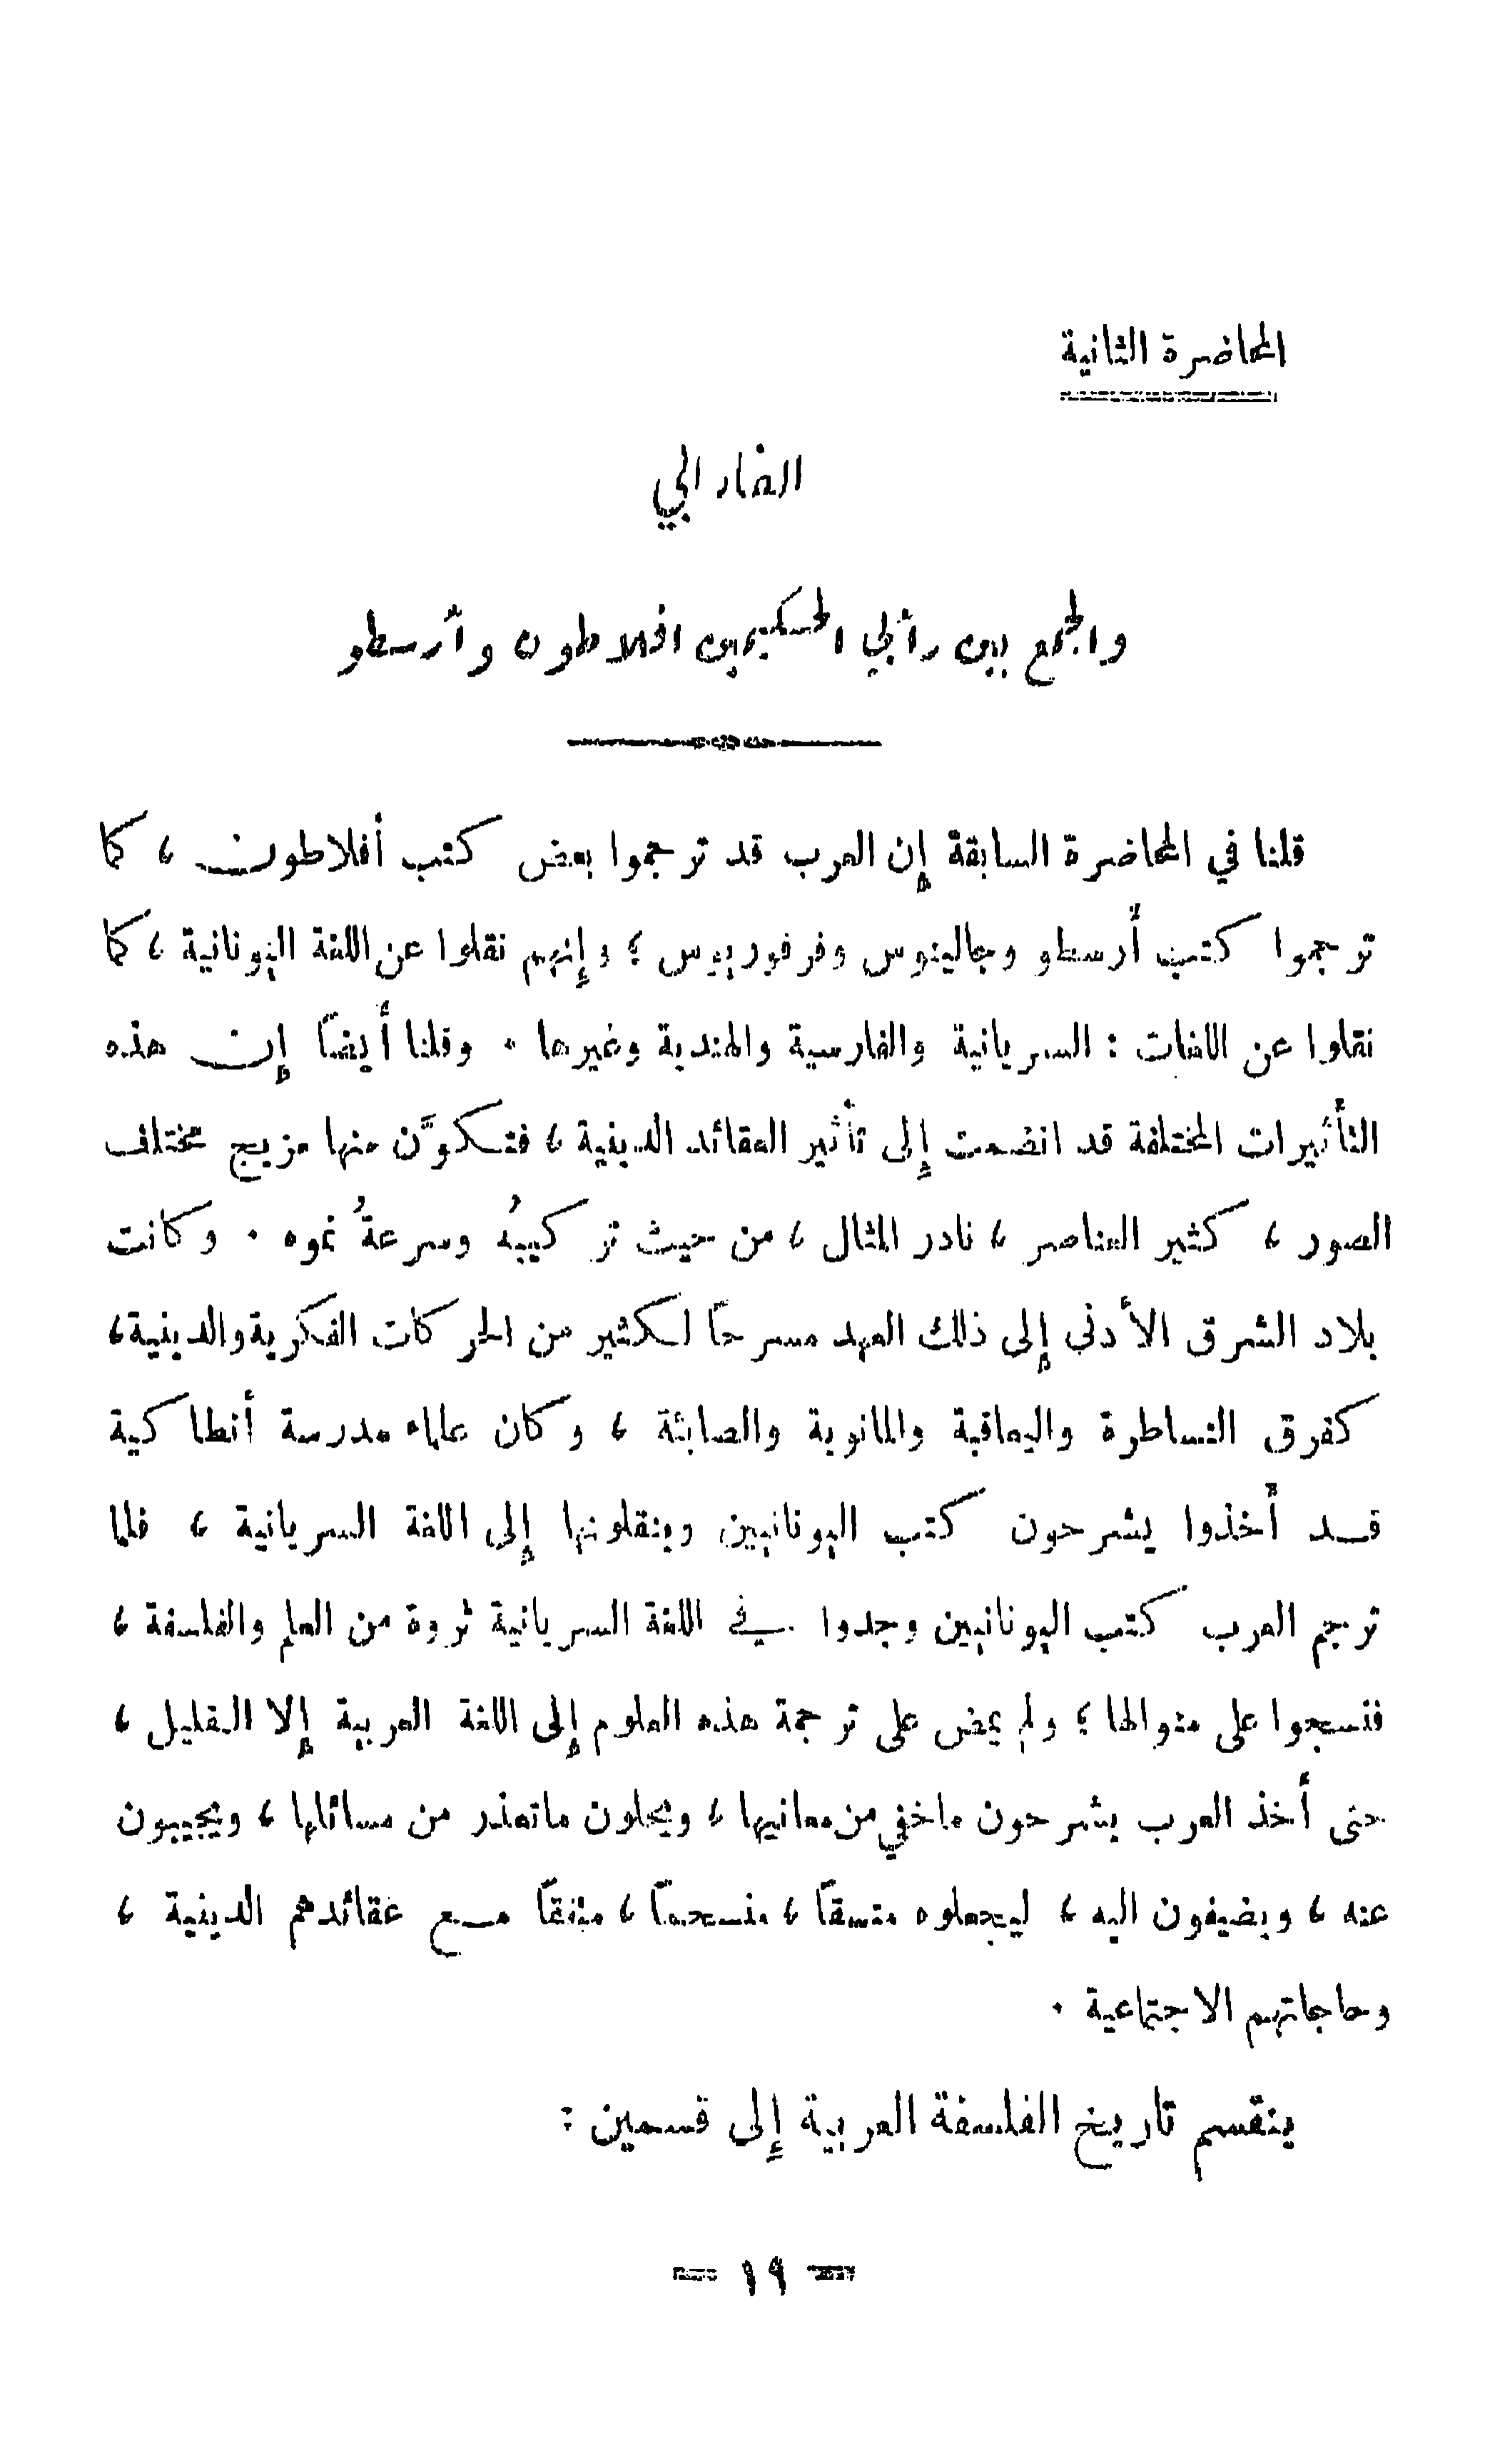 المحاضرة الثانية
الفارابي
والجمع بين رأيي الحكيمين افلاطون وأرسطو
قلنا في المحاضرة السابقة إن العرب قد ترجموا بعض كتب أفلاطون ، كما
ترجموا كتب أرسطو وجالينوس وفرفوريوس ؛ وإنهم نقلوا عن اللغة اليونانية ، كما
نقلوا عن اللغات : السريانية والفارسية والهندية وغيرها . وقلنا أيضاً إن هذه
التأثيرات المختلفة قد انضمت إلى تأثير العقائد الدينية ، فتكوَّن منها مزيج مختلف
الصور ، كثير العناصر ، نادر المثال ، من حيث تركيبُه وسرعةُ نموه . وكانت
بلاد الشرق الأدنى إلى ذلك العهد مسرحاً لكثير من الحركات الفكرية والدينية ،
كفرق النساطرة واليعاقبة والمانوية والصابئة ، وكان علماء مدرسة أنطاكية
قد أخذوا يشرحون كتب اليونانيين وينقلونها إلى اللغة السريانية ، فلما
ترجم العرب كتب اليونانيين وجدوا في اللغة السريانية ثروة من العلم والفلسفة ،
فنسجوا على منوالها ؛ ولم يمض على ترجمة هذه العلوم إلى اللغة العربية إلا القليل ،
حتى أخذ العرب يشرحون ماخفي من معانيها ، ويحلون ماتعذر من مسائلها ، ويجيبون
عنه ، ويضيفون اليه ، ليجعلوه متسقاً ، منسجماً ، متفقاً مع عقائدهم الدينية ،
وحاجاتهم الاجتماعية .
ينقسم تاريخ الفلسفة العربية إلى قسمين :
= ١٩ =